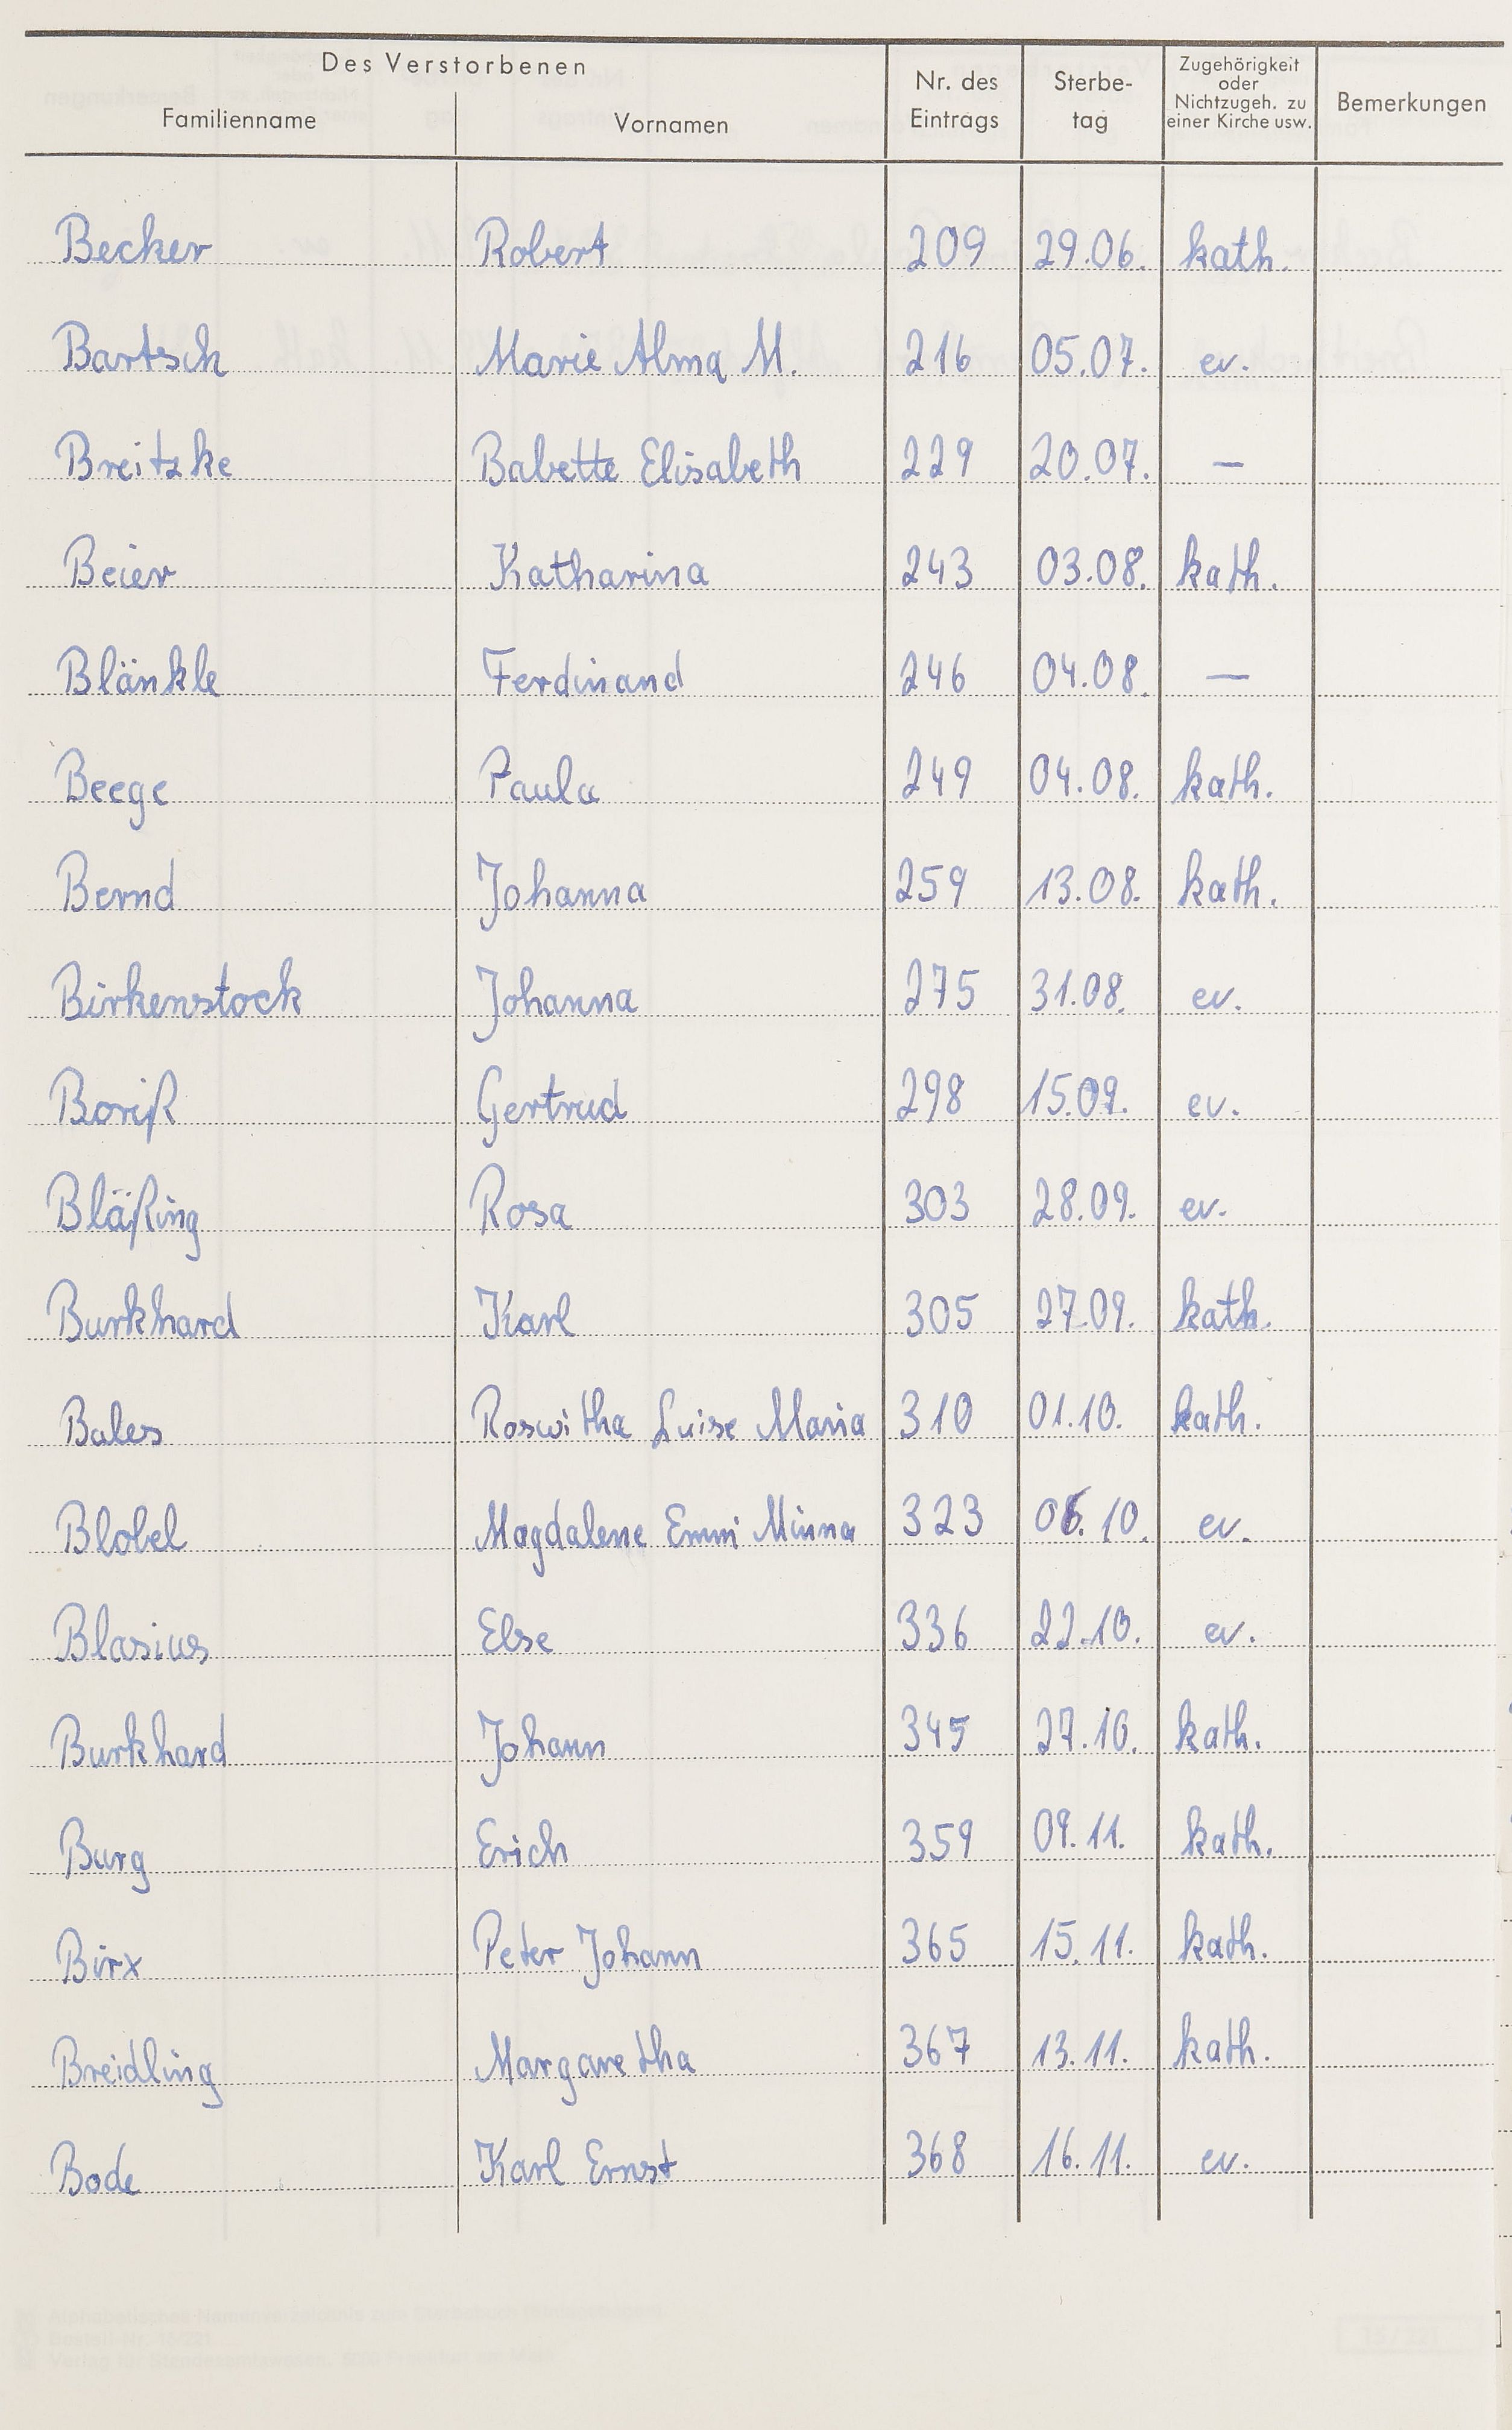 Des Verstorbenen
Familienname Vornamen Nr. des Eintrags Sterbe-tag Zugehörigkeit oder Nichtzugeh. zu einer Kirche usw. Bemerkungen
Becker Robert 209 29.06. kath.
Bartsch Marie Alma M. 216 05.07. ev.
Breitzke Babette Elisabeth 229 20.07. —
Beier Katharina 243 03.08. kath.
Blänkle Ferdinand 246 04.08. —
Beege Paula 249 04.08. kath.
Bernd Johanna 259 13.08. kath.
Birkenstock Johanna 275 31.08. ev.
Boriß Gertrud 298 15.09. ev.
Bläßing Rosa 303 28.09. ev.
Burkhard Karl 305 27.09. kath.
Bales Roswitha Luise Maria 310 01.10. kath.
Blobel Magdalene Emmi Minna 323 06.10. ev.
Blasius Else 336 22.10. ev.
Burkhard Johann 345 27.10. kath.
Burg Erich 359 09.11. kath.
Birx Peter Johann 365 15.11. kath.
Breidling Margaretha 367 13.11. kath.
Bode Karl Ernst 368 16.11. ev.